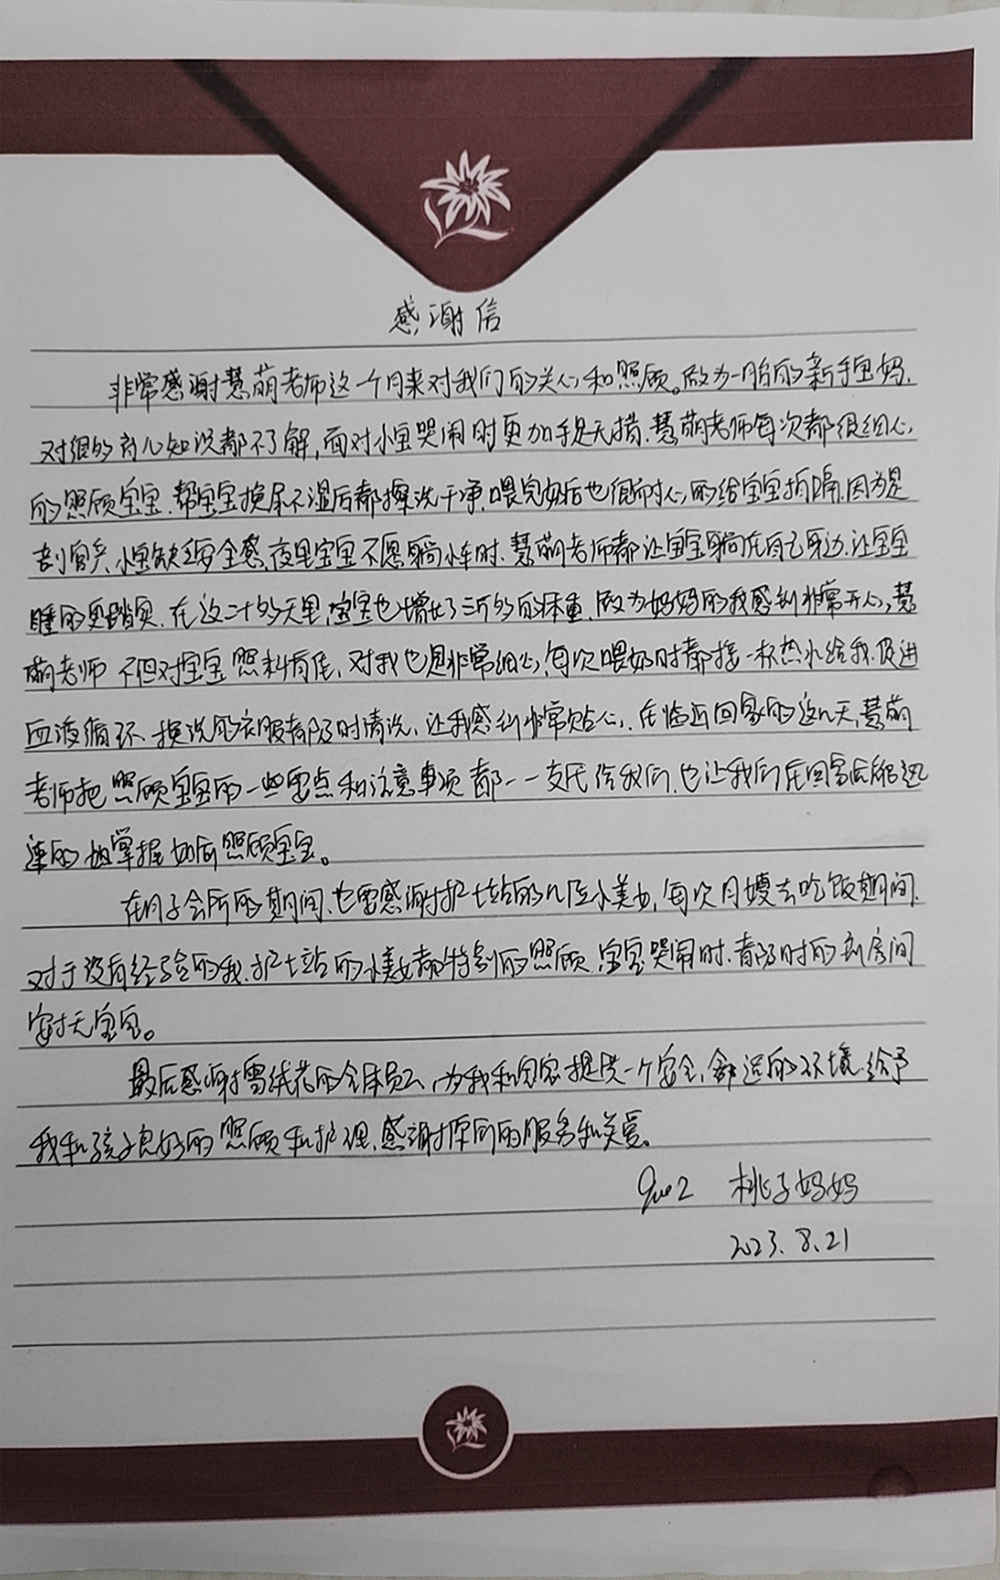 感谢信
非常感谢慧萌老师这一个月来对我们的关心和照顾。做为一胎的新手宝妈,
对很多育儿知识都不了解,面对小宝哭闹时更加手足无措,慧萌老师每次都很细心
的照顾宝宝,帮宝宝换尿不湿后都擦洗干净,喂完奶后也很耐心的给宝宝拍嗝,因为是
剖宫产,小宝缺乏安全感,夜里宝宝不愿躺小车时,慧萌老师都让宝宝躺在自己身边,让宝宝
睡的更踏实,在这二十多天里,宝宝也增长了三斤多的体重,做为妈妈的我感到非常开心,慧
萌老师不但对宝宝照料有佳,对我也是非常细心,每次喂奶时都接一杯热水给我,促进
血液循环、换洗的衣服都及时清洗,让我感到非常贴心,在临近回家的这几天,慧萌
老师把照顾宝宝的一些要点和注意事项都一一交代给我们,也让我们在回家后能迅
速的掌握如何照顾宝宝。
在月子会所的期间,也要感谢护士站的几位小美女,每次月嫂去吃饭期间,
对于没有经验的我,护士站的小美女都特别的照顾,宝宝哭闹时,都及时的到房间
安抚宝宝。
最后感谢雪绒花的全体员工,为我和宝宝提供一个安全,舒适的环境,给予
我和孩子良好的照顾和护理,感谢你们的服务和关爱。
桃子妈妈
2023.8.21